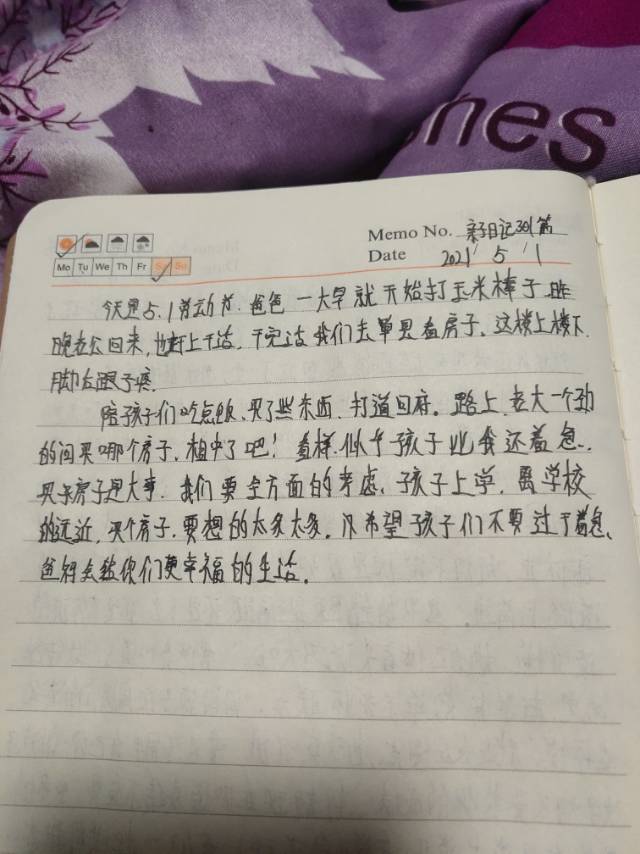 nes
Memo No. 亲子日记301篇
Mo Tu We Th Fr Sa Su
Date 2021 / 5 / 1
今天是5.1劳动节.爸爸一大早就开始打玉米棒子.昨
晚在公回来,也赶上干活.干完活我们去单县看房子.这楼上楼下.
脚后跟子疼.
陪孩子们吃点饭.买了些东西.打道回府.路上.老大一个劲
的问买哪个房子.相中了吧!看样.似乎孩子比我还着急..
买房子是大事.我们要全方面的考虑.孩子上学.离学校
的远近.买个房子.要想的太多太多.从希望孩子们不要过于着急.
爸妈会给你们更幸福的生活.